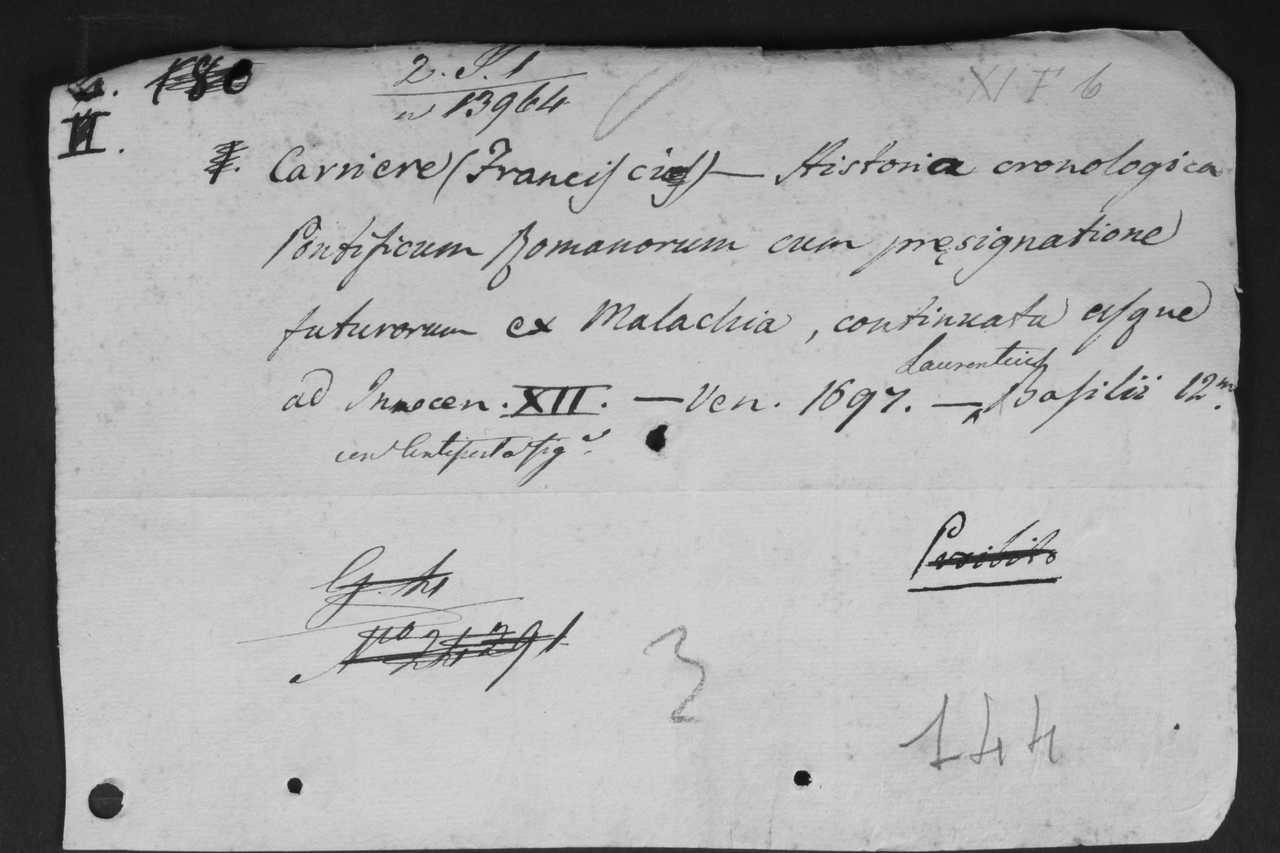 2. S. 1
n 13964
XI F 6
II.
Carriere (Franciscus) — Historia cronologica
Pontificum Romanorum cum pręsignatione
futurorum ex Malachia, continuata usque
ad Innocen. XII. — Ven. 1697. — Laurentius Basilii 12.mo
Proibito
3
144